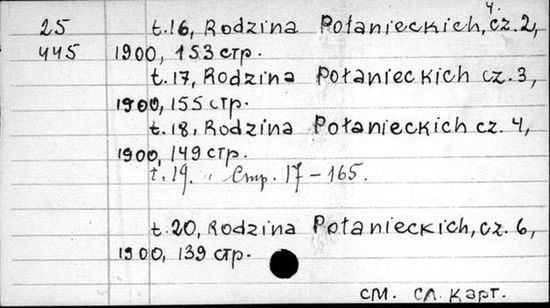 4.
25 t.16, Rodzina Połanieckich, cz. 2,
445 1900, 153 стр.
t.17, Rodzina Połanieckich cz. 3,
1900, 155 стр.
t.18, Rodzina Połanieckich cz. 4,
1900, 149 стр.
t.19. Стр. 17-165.
t.20, Rodzina Połanieckich, cz. 6,
1900, 139 стр.
см. сл. карт.